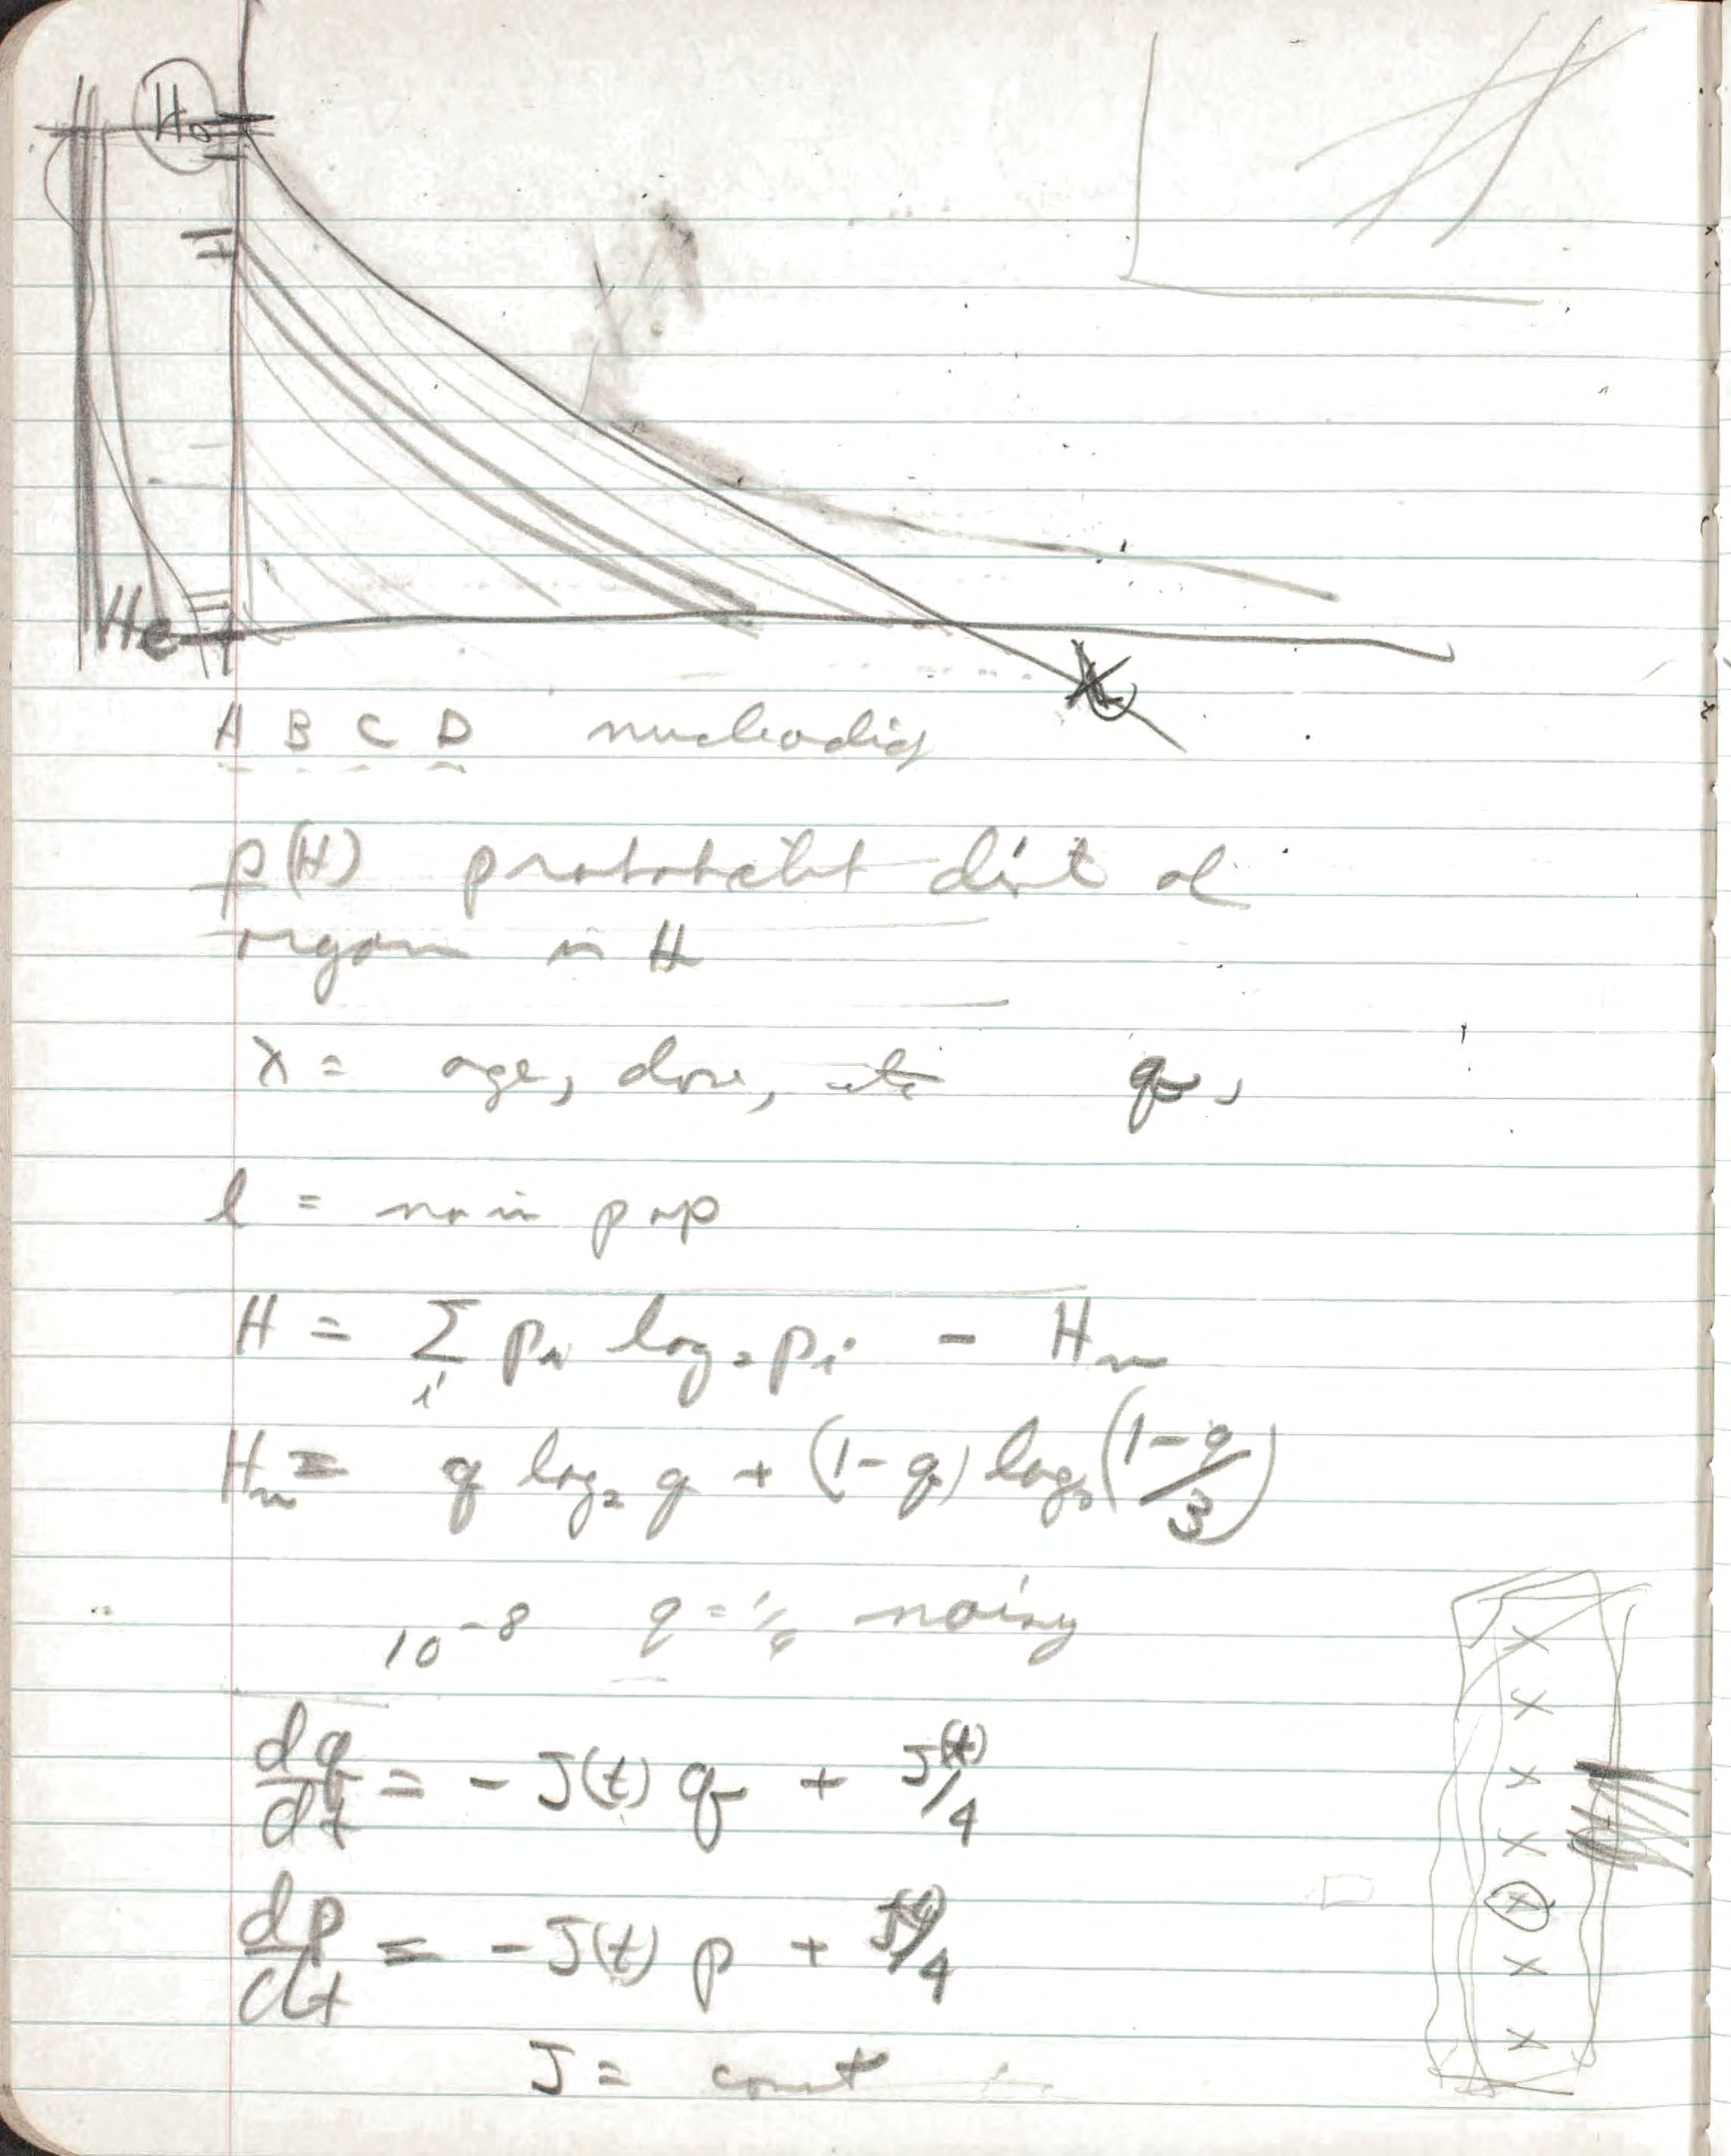 H₀
He
A B C D
p(H) probabilit dist of
organ in H
x = age, dose, etc q,
l = no in pop
H = Σ_i p_i log₂ p_i - H_n
H_n = q log₂ q + (1-q) log₂ (1-q/3)
10⁻⁸ q = 1/4 noisy
dq/dt = - J(t) q + J(t)/4
dp/dt = - J(t) p + J(t)/4
J = const
x
x
x
x
x
x
x